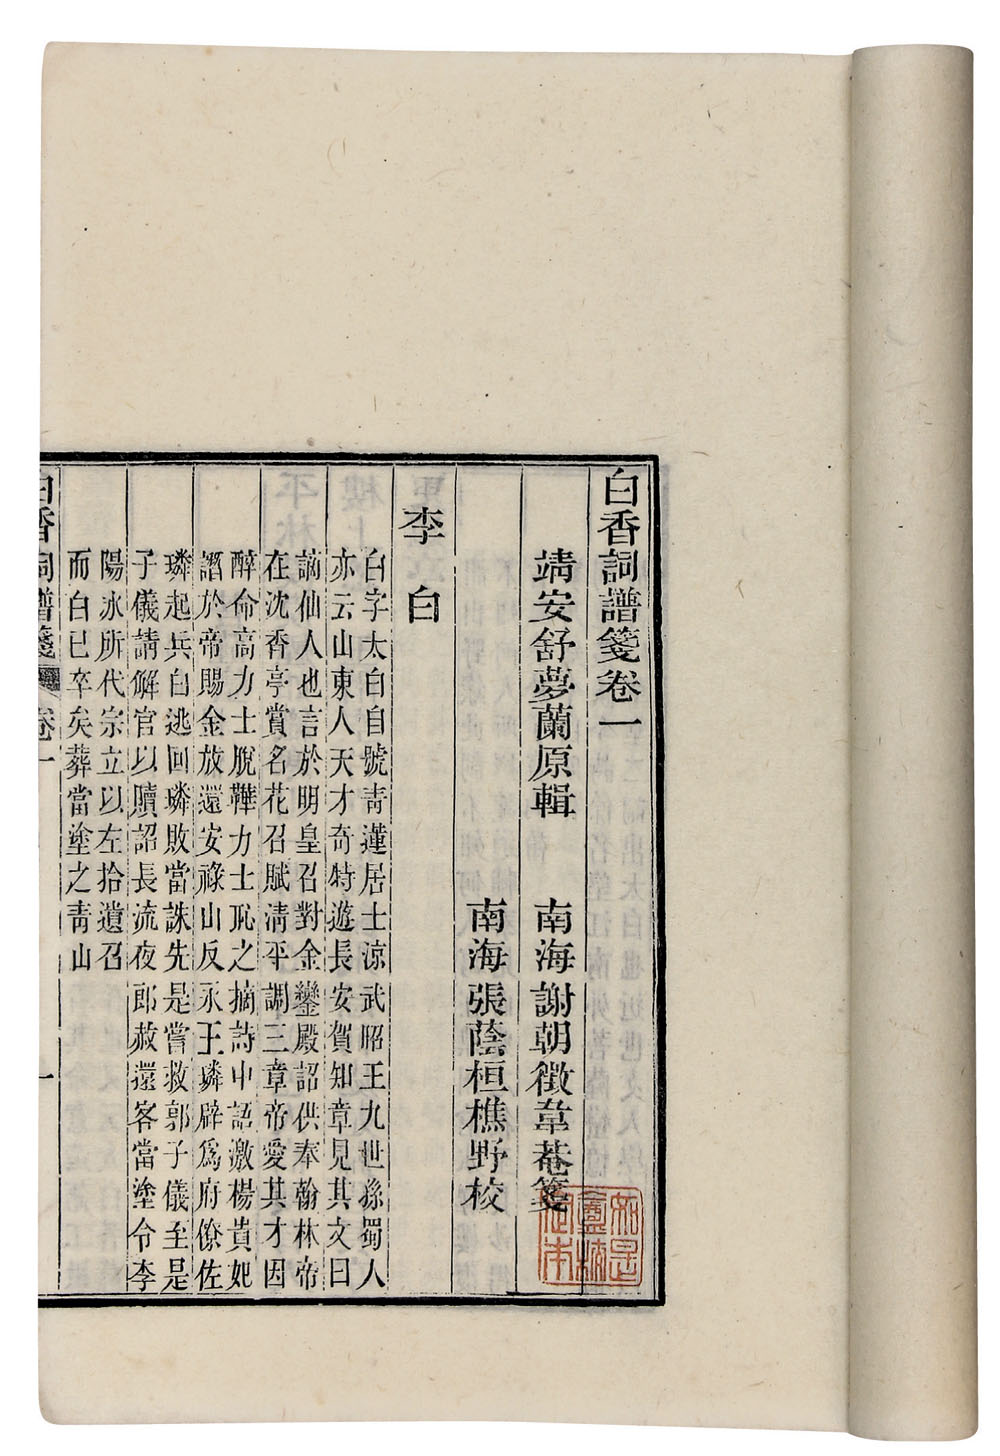 白香詞譜箋卷一
靖安舒夢蘭原輯　南海謝朝徵韋菴箋
南海張蔭桓樵野校
李白
白字太白自號青蓮居士涼武昭王九世孫蜀人
亦云山東人天才奇特遊長安賀知章見其文曰
謫仙人也言於明皇召對金鑾殿詔供奉翰林帝
在沈香亭賞名花召賦清平調三章帝愛其才因
醉命高力士脫鞾力士恥之摘詩中語激楊貴妃
譖於帝賜金放還安祿山反永王璘辟爲府僚佐
璘起兵白逃回璘敗當誅先是嘗救郭子儀至是
子儀請解官以贖詔長流夜郎赦還客當塗令李
陽冰所代宗立以左拾遺召
而白已卒矣葬當塗之青山
白香詞譜箋　卷一　一
如是